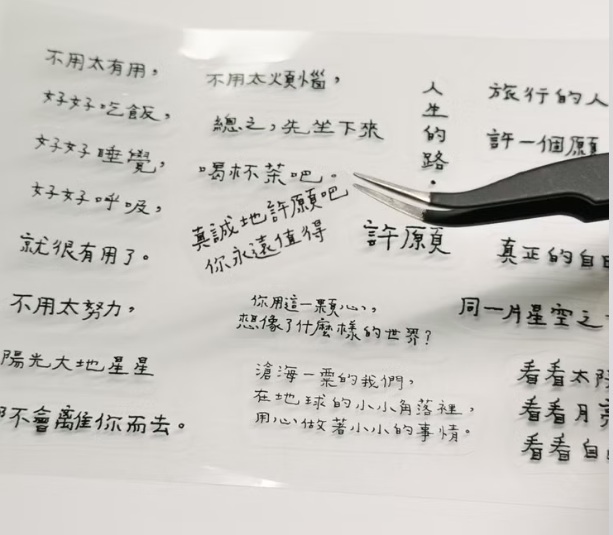 不用太有用，
好好吃飯，
好好睡覺，
好好呼吸，
就很有用了。
不用太努力，
陽光大地星星
不會離你而去。
不用太煩惱，
總之，先坐下來
喝杯茶吧。
真誠地許願吧
你永遠值得
人生的路．
許願
你用這一顆心，
想像了什麼樣的世界？
滄海一粟的我們，
在地球的小小角落裡，
用心做著小小的事情。
旅行的人
許一個願
真正的自由
同一片星空之
看看太陽
看看月亮
看看自